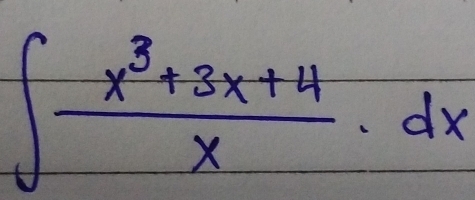 ∫ x³+3x+4 / x . dx